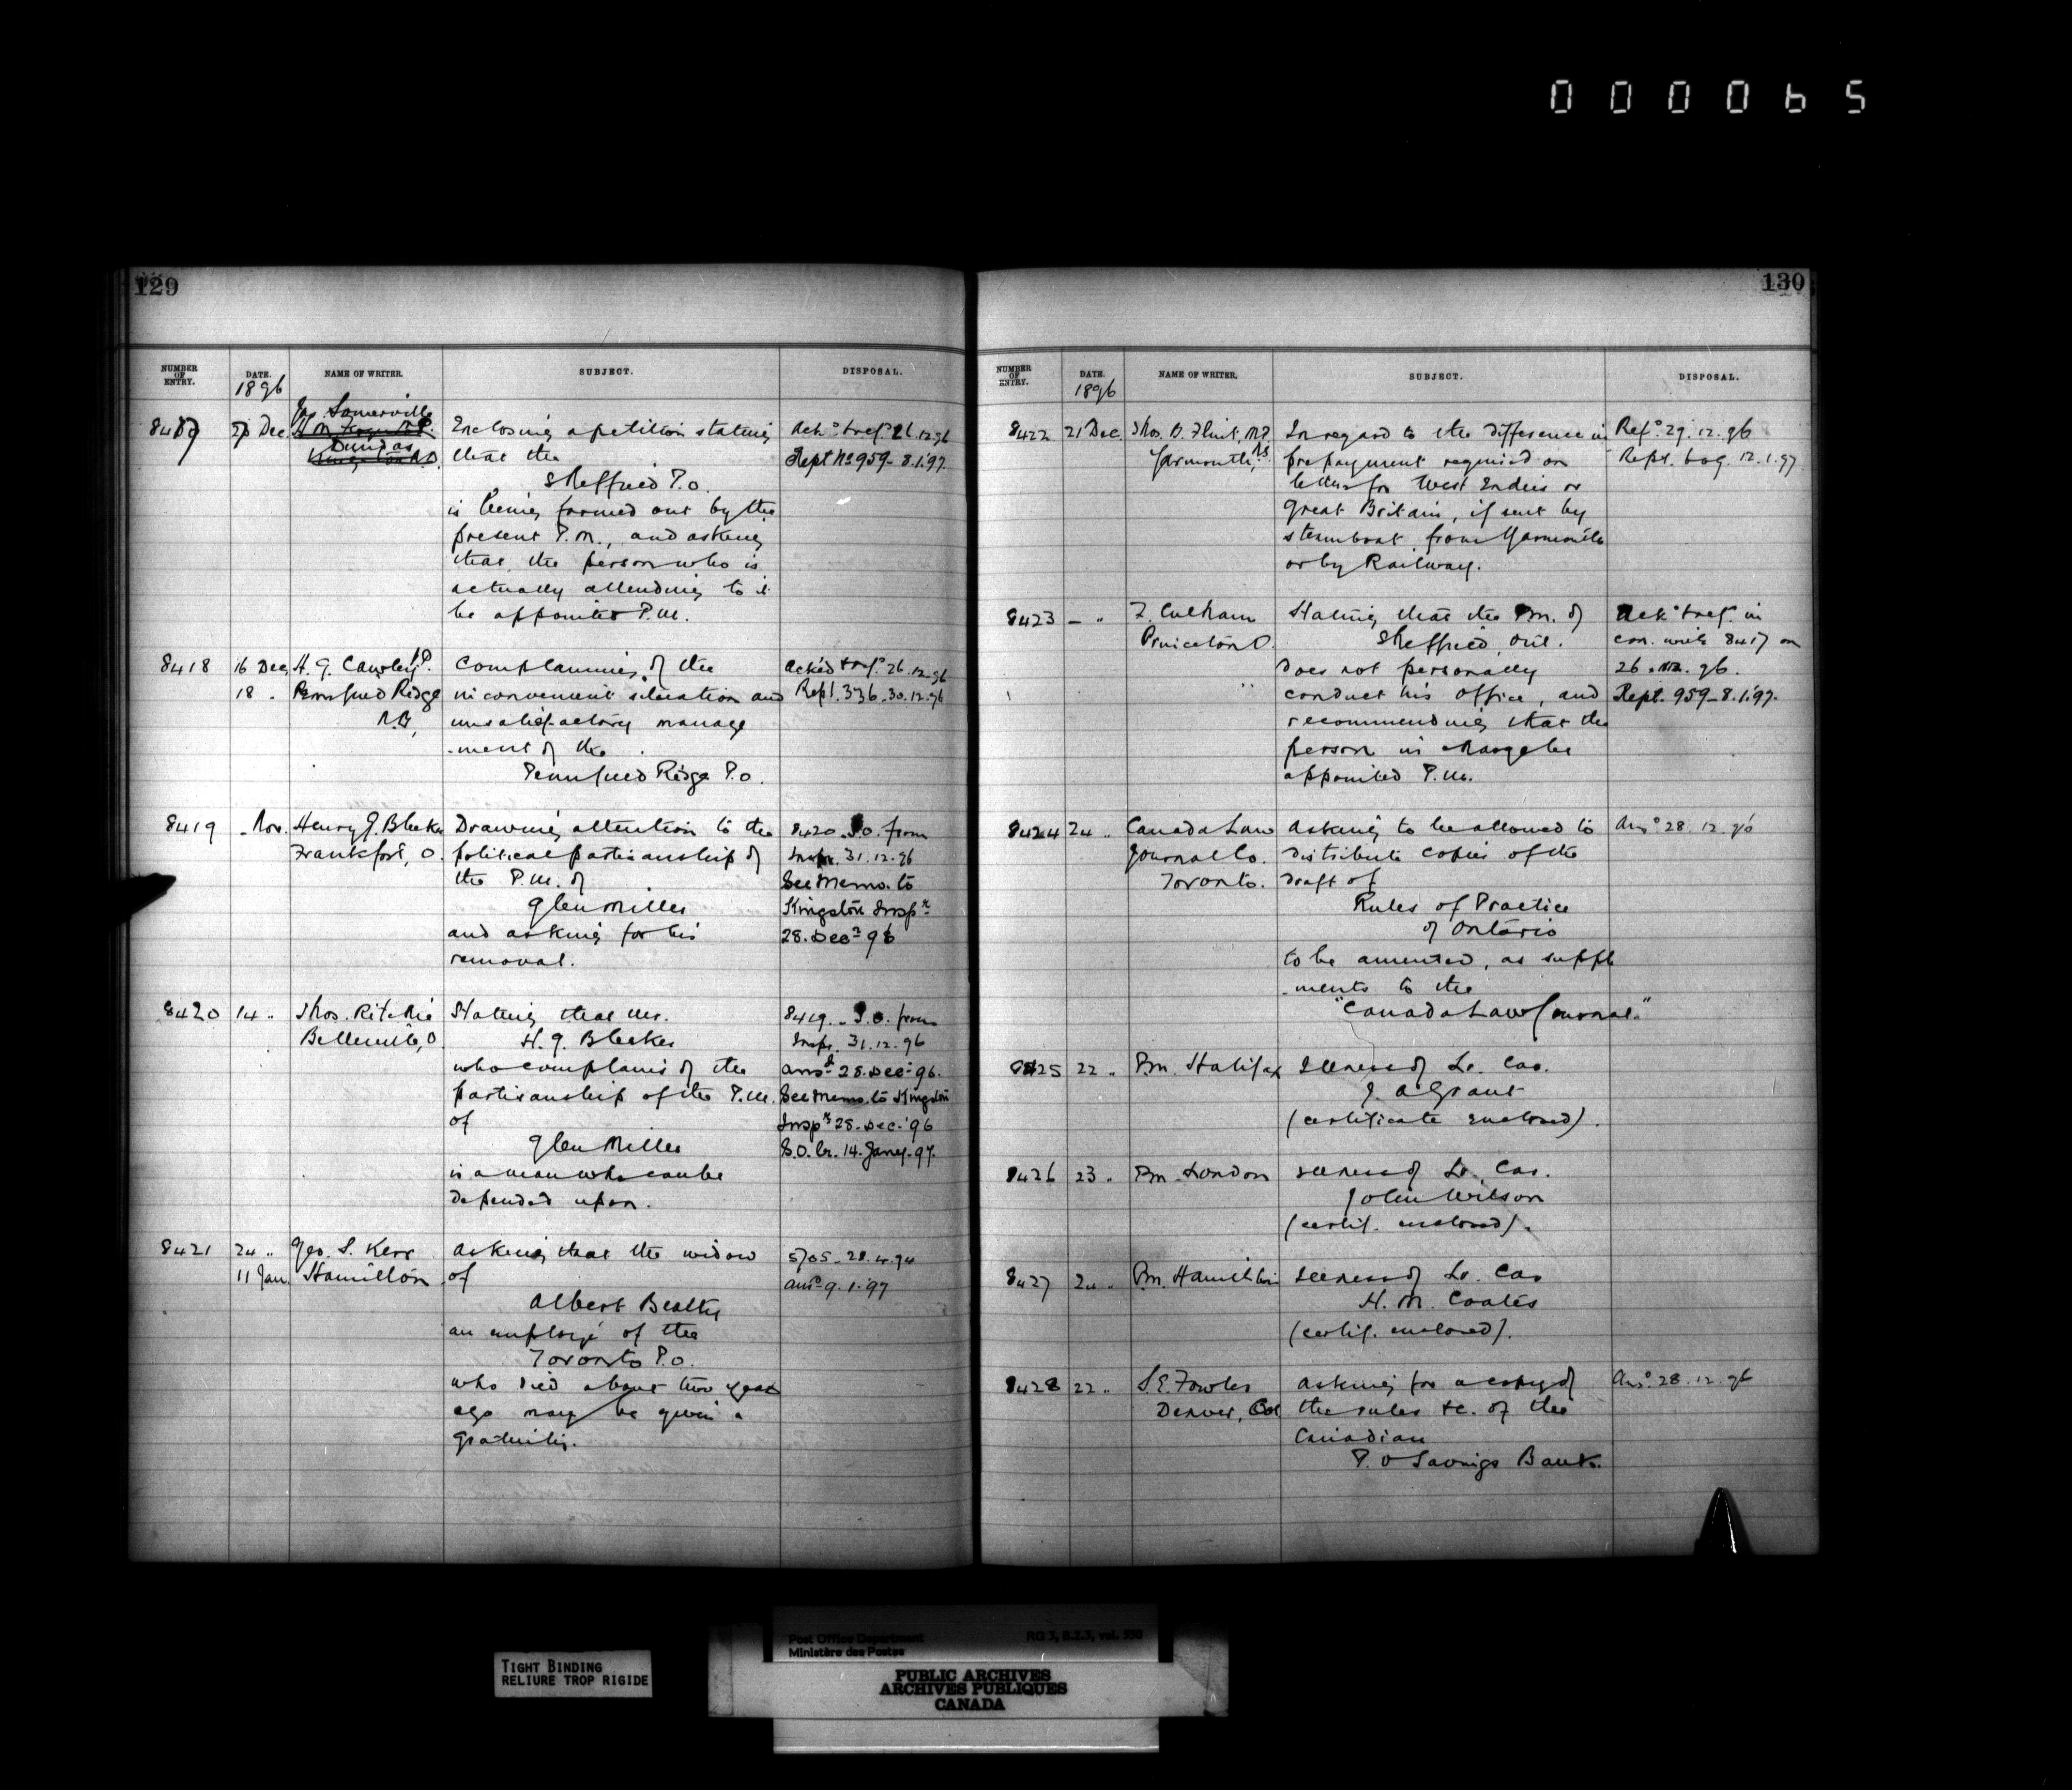 000065
129
NUMBER OF ENTRY. DATE. NAME OF WRITER. SUBJECT. DISPOSAL.
1896
Jas. Somerville
8417 23 Dec. Enclosing a petition stating Ack.d & ref.d 26.12.96
Dundas
that the Rept No 959 - 8.1.97.
Sheffield P.O.
is being farmed out by the
present P.M., and asking
that the person who is
actually attending to it
be appointed P.M.
8418 16 Dec. H. G. Cawley Complaining of the Acked & ref.d 26.12.96
18 . Pennfield Ridge inconvenient situation and Rept. 336. 30.12.96
N.B. unsatisfactory manage
-ment of the
Pennfield Ridge P.O.
8419 - Nov. Henry G. Bleeker Drawing attention to the 8420. S.O. from
Frankford, O. political partisanship of Inspr. 31.12.96
the P.M. of See Memo. to
Glen Miller Kingston Inspr
28. Decr 96
and asking for his
removal.
8420 14 " Thos. Ritchie Stating that Mr. 8419. S.O. from
Belleville, O. H. G. Bleeker Inspr. 31.12.96
who complains of the ansd 28. Dec. 96.
partisanship of the P.M. See Memo. to Kingston
of Inspr 28. Dec. '96
Glen Miller S.O. br. 14. Jany. 97.
is a man who can be
depended upon.
8421 24 " Geo. S. Kerr Asking that the widow 5705. 28.4.94
11 Jan. Hamilton of ansd 9.1.97
Albert Beatty
an employé of the
Toronto P.O.
who died about two years
ago may be given a
gratuity.
130
NUMBER OF ENTRY. DATE. NAME OF WRITER. SUBJECT. DISPOSAL.
1896
8422 21 Dec. Thos. B. Flint, M.P. In regard to the difference in Ref.d 29.12.96
Yarmouth, N.S. prepayment required on Rept. 609. 12.1.97
letters for West Indies or
Great Britain, if sent by
steamboat from Yarmouth
or by Railway.
8423 - " Z. Culham Stating that the P.M. of Ack.d & ref.d in
Princeton O. Sheffield, Ont. con. with 8417 on
does not personally 26.12.96.
conduct his office, and Rept. 959 - 8.1.97.
recommending that the
person in charge be
appointed P.M.
8424 24 " Canada Law Asking to be allowed to Ansd 28.12.96
Journal Co. distribute copies of the
Toronto. draft of
Rules of Practice
of Ontario
to be amended, as supple
-ments to the
"Canada Law Journal."
8425 22 " P.M. Halifax Illness of Lr. Car.
J. A Grant
(certificate enclosed).
8426 23 " P.M. London Illness of Lr. Car.
John Wilson
(certif. enclosed).
8427 24 " P.M. Hamilton Illness of Lr. Car
H. M. Coates
(certif. enclosed).
8428 22 " S. E. Fowler Asking for a copy of Ansd 28.12.96
Denver, Col the rules &c. of the
Canadian
P.O Savings Bank.
Post Office Department RG 3, B.2.3, vol. 550
Ministère des Postes
TIGHT BINDING
RELIURE TROP RIGIDE
PUBLIC ARCHIVES
ARCHIVES PUBLIQUES
CANADA